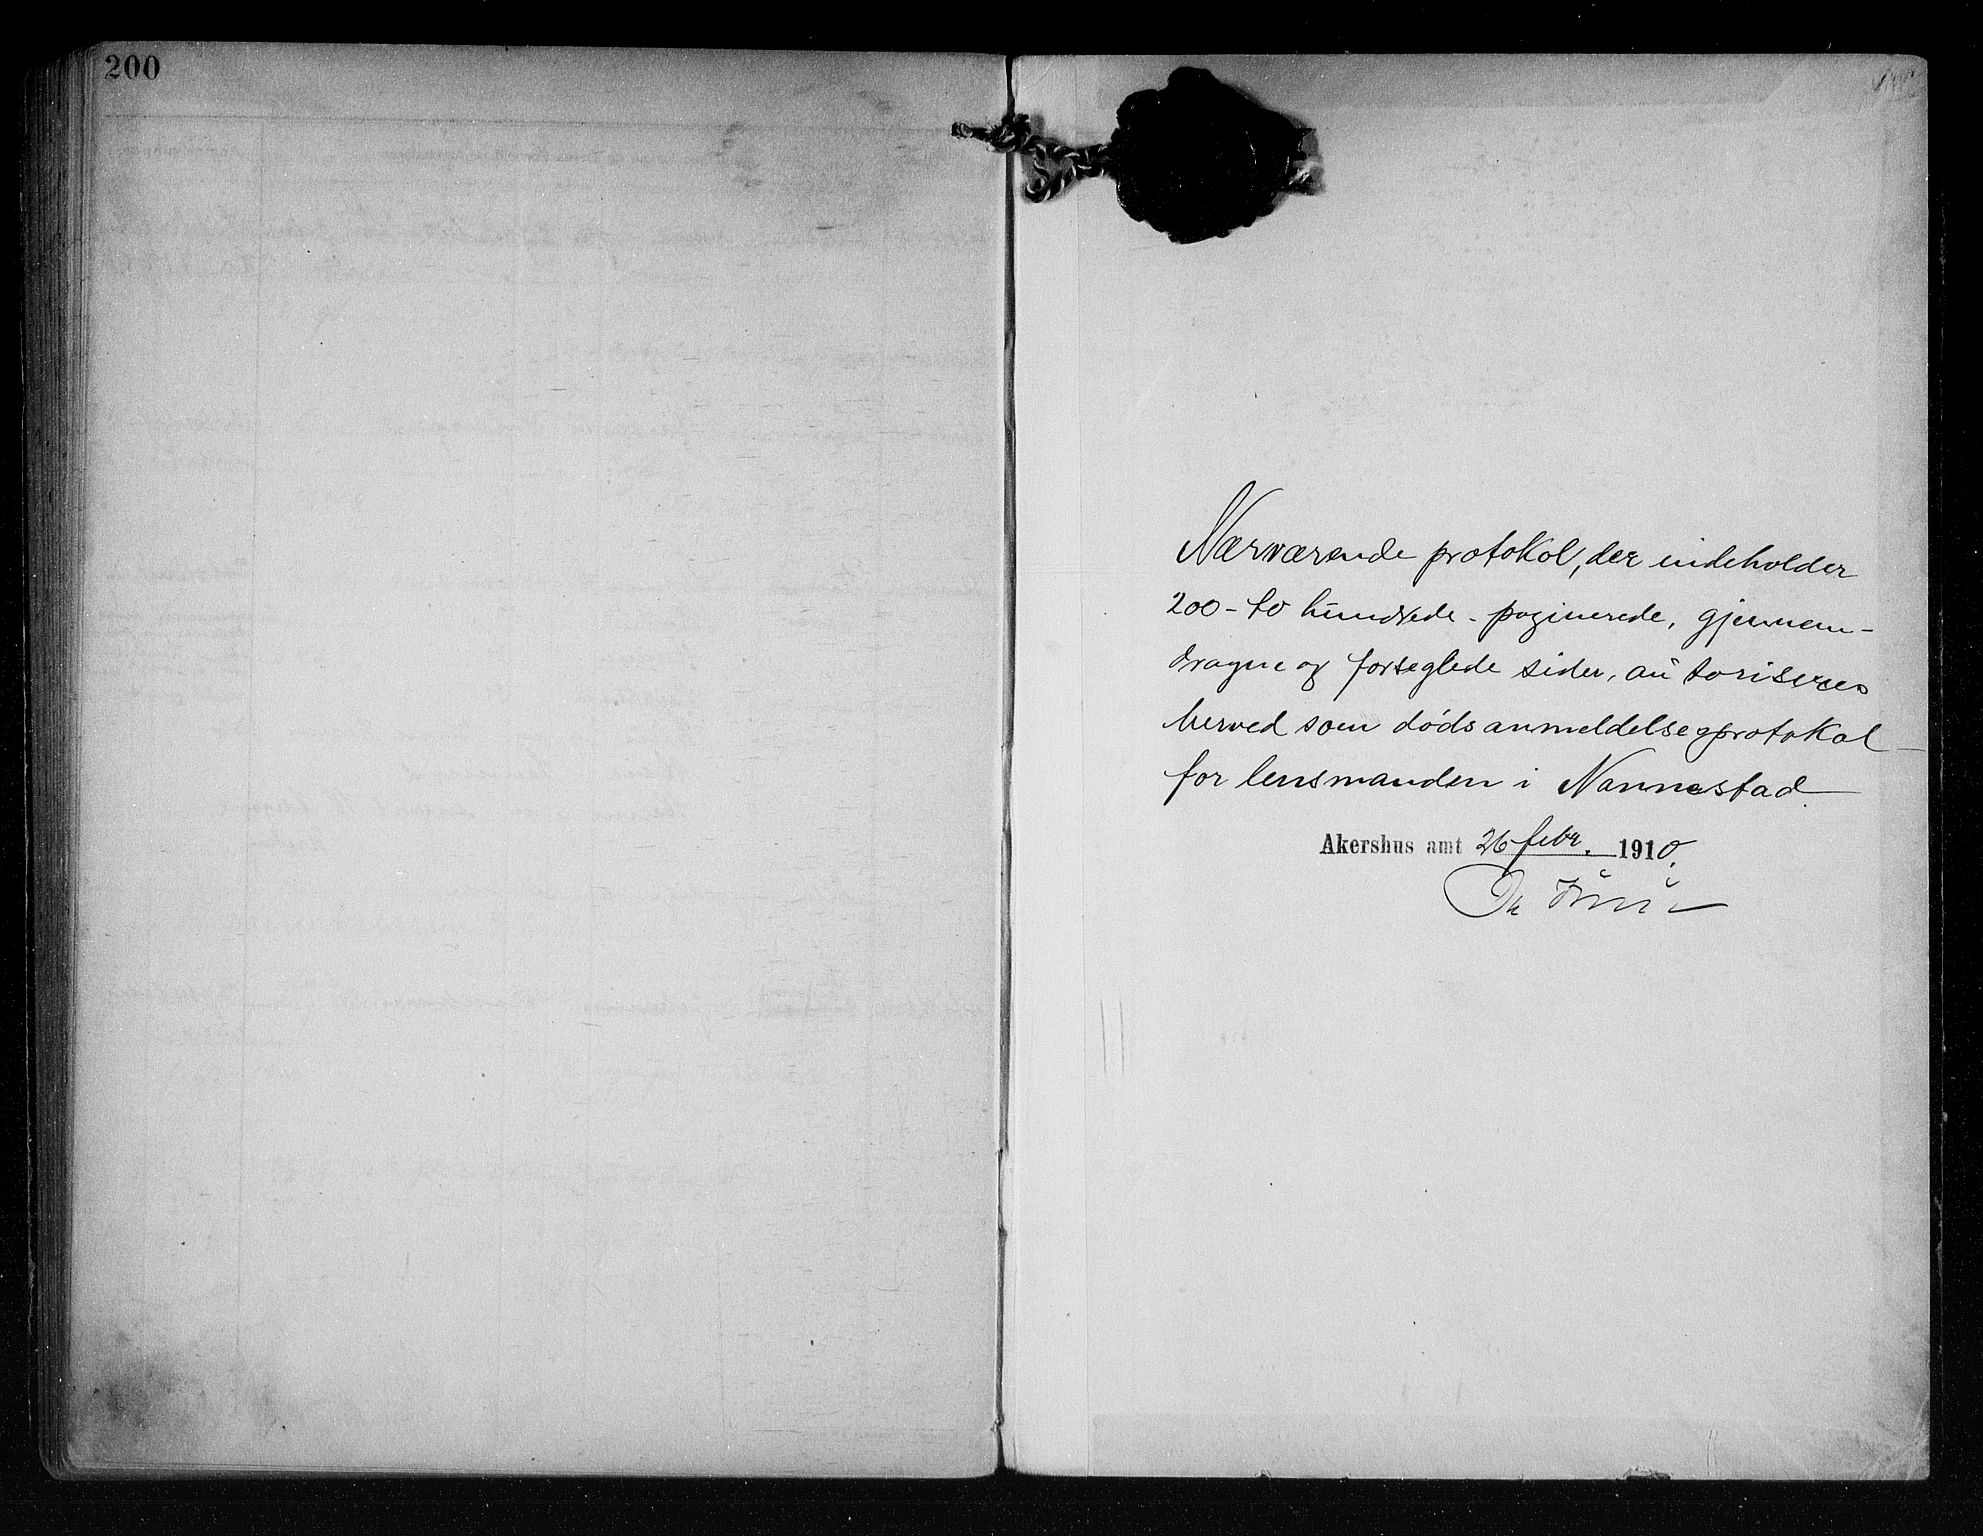 200
Nærværende protokol, der indeholder
200 - to hundrede - paginerede, gjennem-
dragne og forseglede sider, autoriseres
herved som dødsanmeldelsesprotokol
for lensmanden i Nannestad.
Akershus amt 26 febr. 1910.